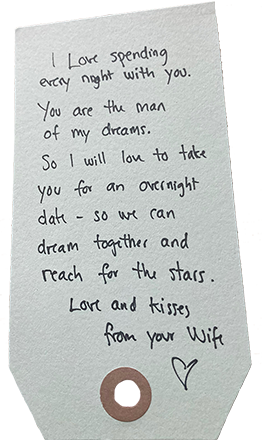 I Love spending
every night with you.
You are the man
of my dreams.
So I will love to take
you for an overnight
date - so we can
dream together and
reach for the stars.
Love and kisses
from your Wife